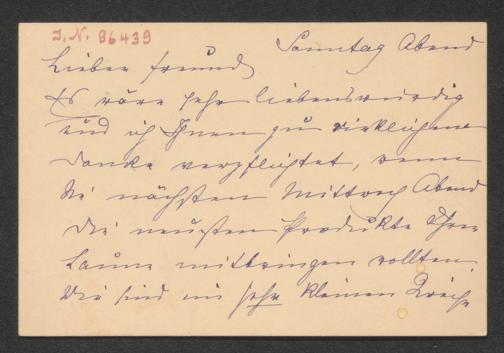 I. N. 86439
Sonntag Abend
Lieber Freund
Es wäre sehr liebenswürdig
und ich Ihnen zu wirklichem
Danke verpflichtet, wenn
Sie nächsten Mittwoch Abend
die neusten Produkte Ihrer
Laune mitbringen wollten.
Wir sind im sehr kleinen Kreise